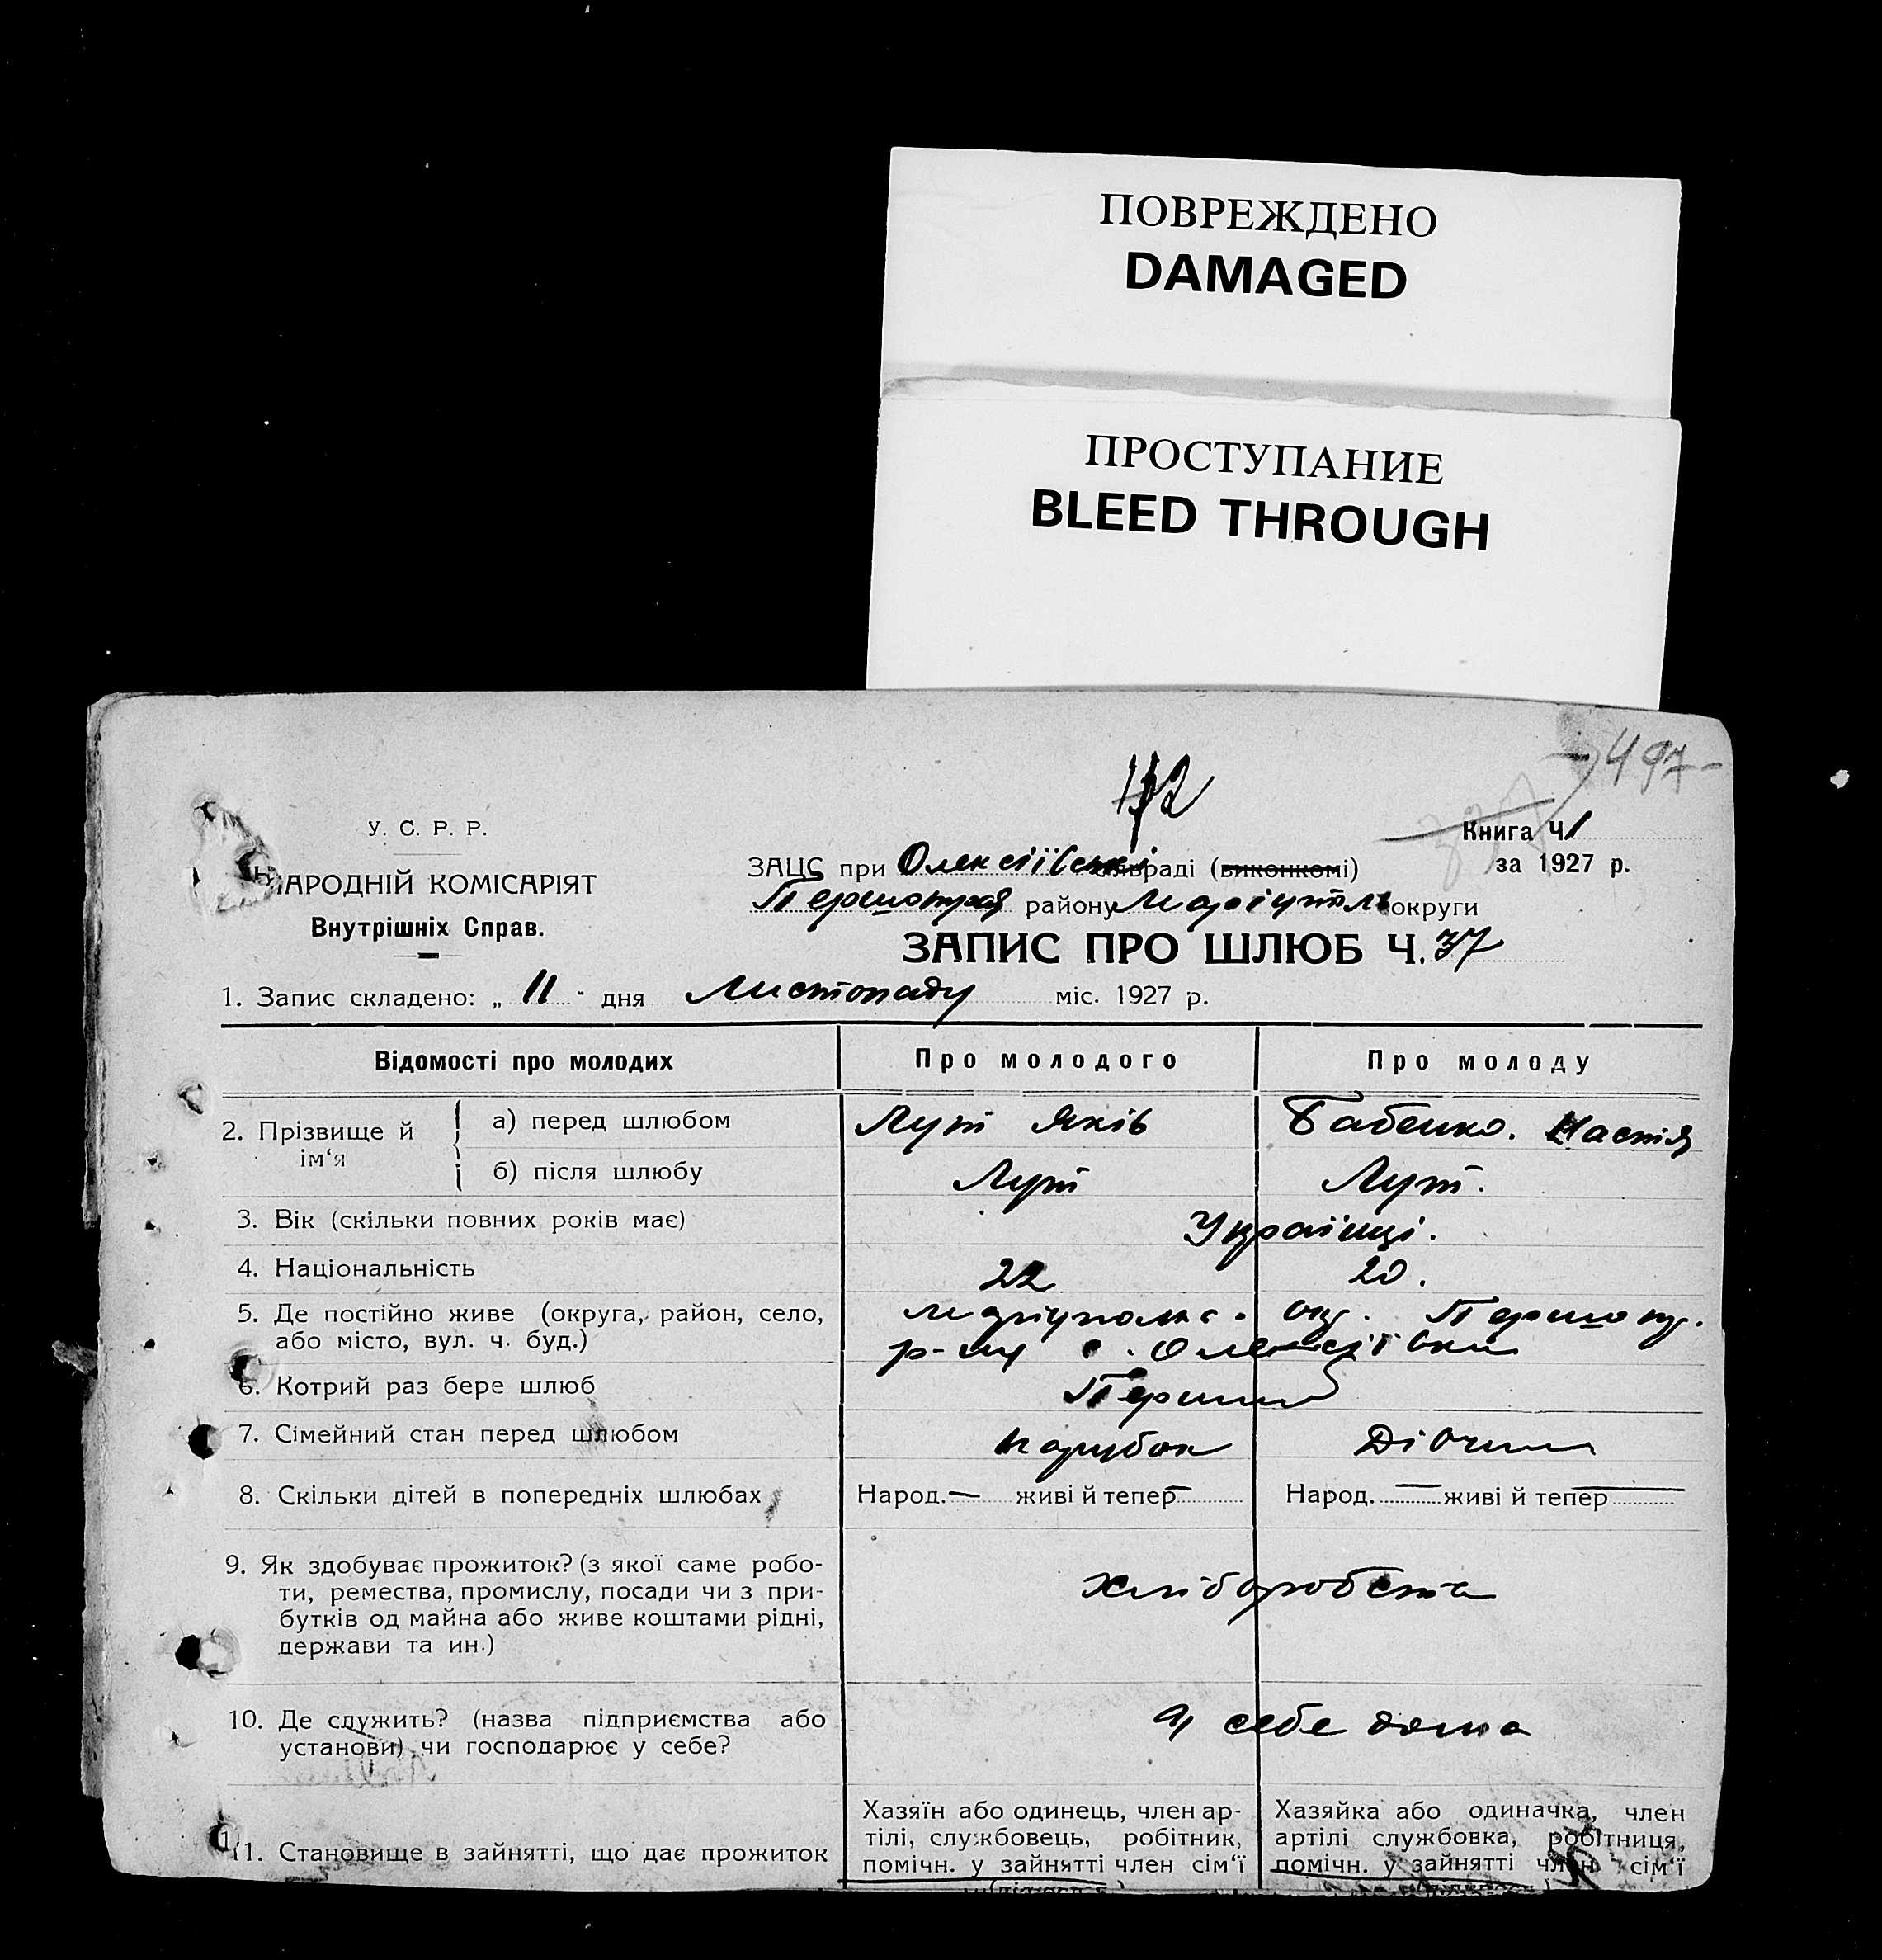 ПОВРЕЖДЕНО
DAMAGED
ПРОСТУПАНИЕ
BLEED THROUGH
497-
У. С. Р. Р.
НАРОДНІЙ КОМІСАРІЯТ
Внутрішніх Справ.
Книга Ч 1
за 1927 р.
ЗАЦС при Олексіївській сільраді (виконкомі)
Першопр району Маріупіль округи
ЗАПИС ПРО ШЛЮБ Ч. 37
1. Запис складено: „ 11 " дня Листопаду міс. 1927 р.
Відомості про молодих Про молодого Про молоду
2. Прізвище й ім'я а) перед шлюбом Лут Яків Бабенко. Настя
б) після шлюбу Лут Лут.
3. Вік (скільки повних років має) Українці.
4. Національність 22 20.
5. Де постійно живе (округа, район, село, Маріупольс. окр. Першопр.
або місто, вул. ч. буд.) р-ну с. Олексіївки
6. Котрий раз бере шлюб Перший
7. Сімейний стан перед шлюбом Парубок Дівчина
8. Скільки дітей в попередніх шлюбах Народ. — живі й тепер — Народ. — живі й тепер —
9. Як здобуває прожиток? (з якої саме робо-
ти, ремества, промислу, посади чи з при-
бутків од майна або живе коштами рідні,
держави та ин.)
хліборобства
10. Де служить? (назва підприємства або
установи) чи господарює у себе?
у себе дома
11. Становище в зайнятті, що дає прожиток
Хазяїн або одинець, член ар-
тілі, службовець, робітник,
помічн. у зайнятті член сім'ї
Хазяйка або одиначка, член
артілі службовка, робітниця,
помічн. у зайнятті член сім'ї